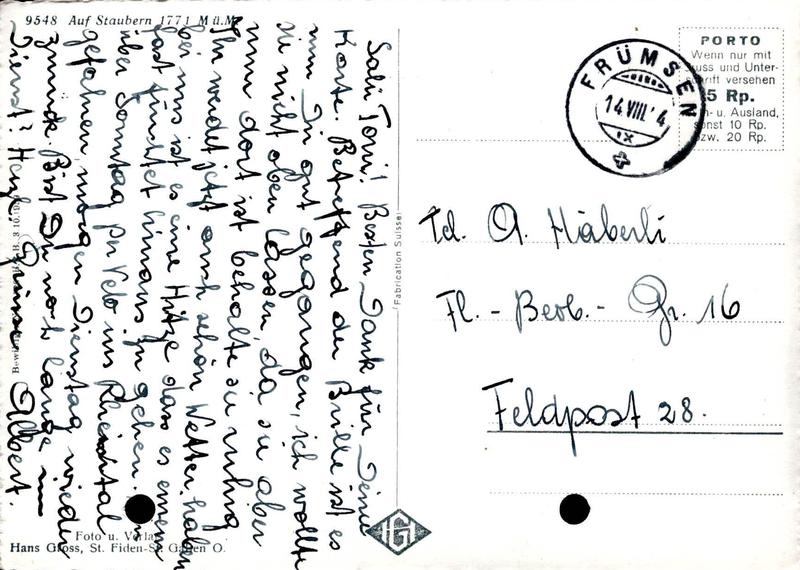 9548 Auf Staubern 1771 M ü.M.
Salü Toni! Besten Dank für Deine
Karte. Betreffend der Brille ist es
nun Dir gut gegangen, ich wollte
sie nicht oben lassen, da sie aber
nun dort ist behalte sie ruhig
Ihr werdet jetzt auch schön Wetter haben
bei uns ist es eine Hitze dass es einem
fast fürchtet hinaus zu gehen.
über Sonntag per Velo ins Rheintal
gefahren, morgen Dienstag wieder
zurück. Bist Du noch lange im
Dienst? Herzl. Grüsse Albert.
Foto u. Verlag
Hans Gross, St. Fiden-St. Gallen O.
Fabrication Suisse
HG
FRÜMSEN
14.VIII.4
IX
PORTO
Wenn nur mit
Gruss und Unter-
schrift versehen
5 Rp.
In- u. Ausland,
sonst 10 Rp.
bzw. 20 Rp.
Td. A. Häberli
Fl. - Beob. - Gr. 16
Feldpost 28.